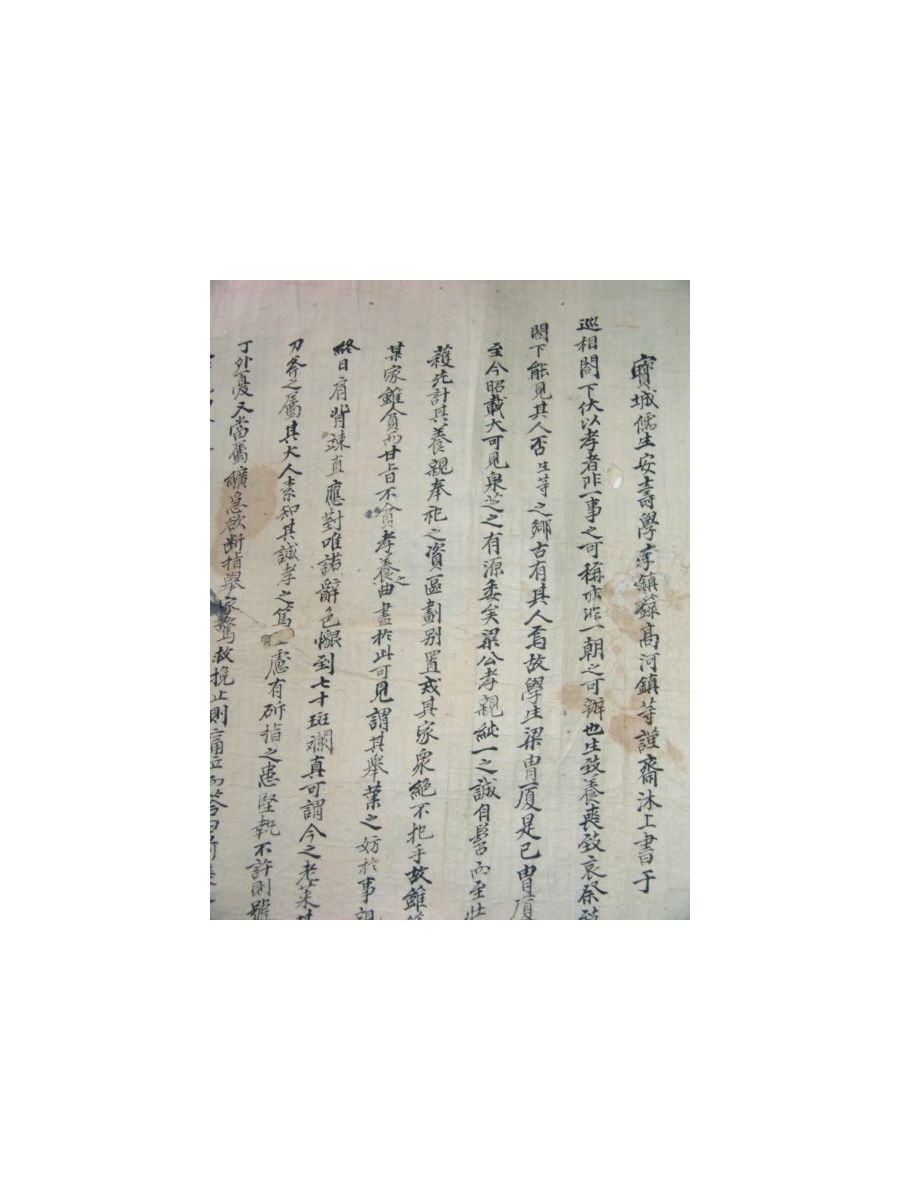 寶城儒生安壽學李鎮籙高河鎮等謹齋沐上書于
巡相閤下伏以孝者非一事之可稱亦非一朝之可辦也生致養喪致哀祭致
閤下能見其人否生等之鄉古有其人焉故學生梁胄厦是已胄厦
至今昭載大可見泉芝之有源委矣梁公孝親純一之誠自髫而至壯
穫先計其養親奉祀之資區劃別置戒其家衆絶不把手故雖
某家雖貧而甘旨不貧孝養之曲盡於此可見謂其舉業之妨於事親
終日肩背竦直應對唯諾辭色愠到七十斑斕真可謂今之老萊
刀斧之屬其大人素知其誠孝之篤慮有斫指之患堅執不許則號
丁外憂又當屬纊急欲斷指舉家驚救挽止則